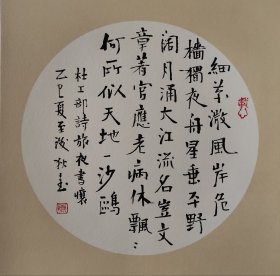 細草微風岸危
檣獨夜舟星垂平野
闊月涌大江流名豈文
章著官應老病休飄〻
何所似天地一沙鷗
杜工部詩旅夜書懷
乙巳夏至後